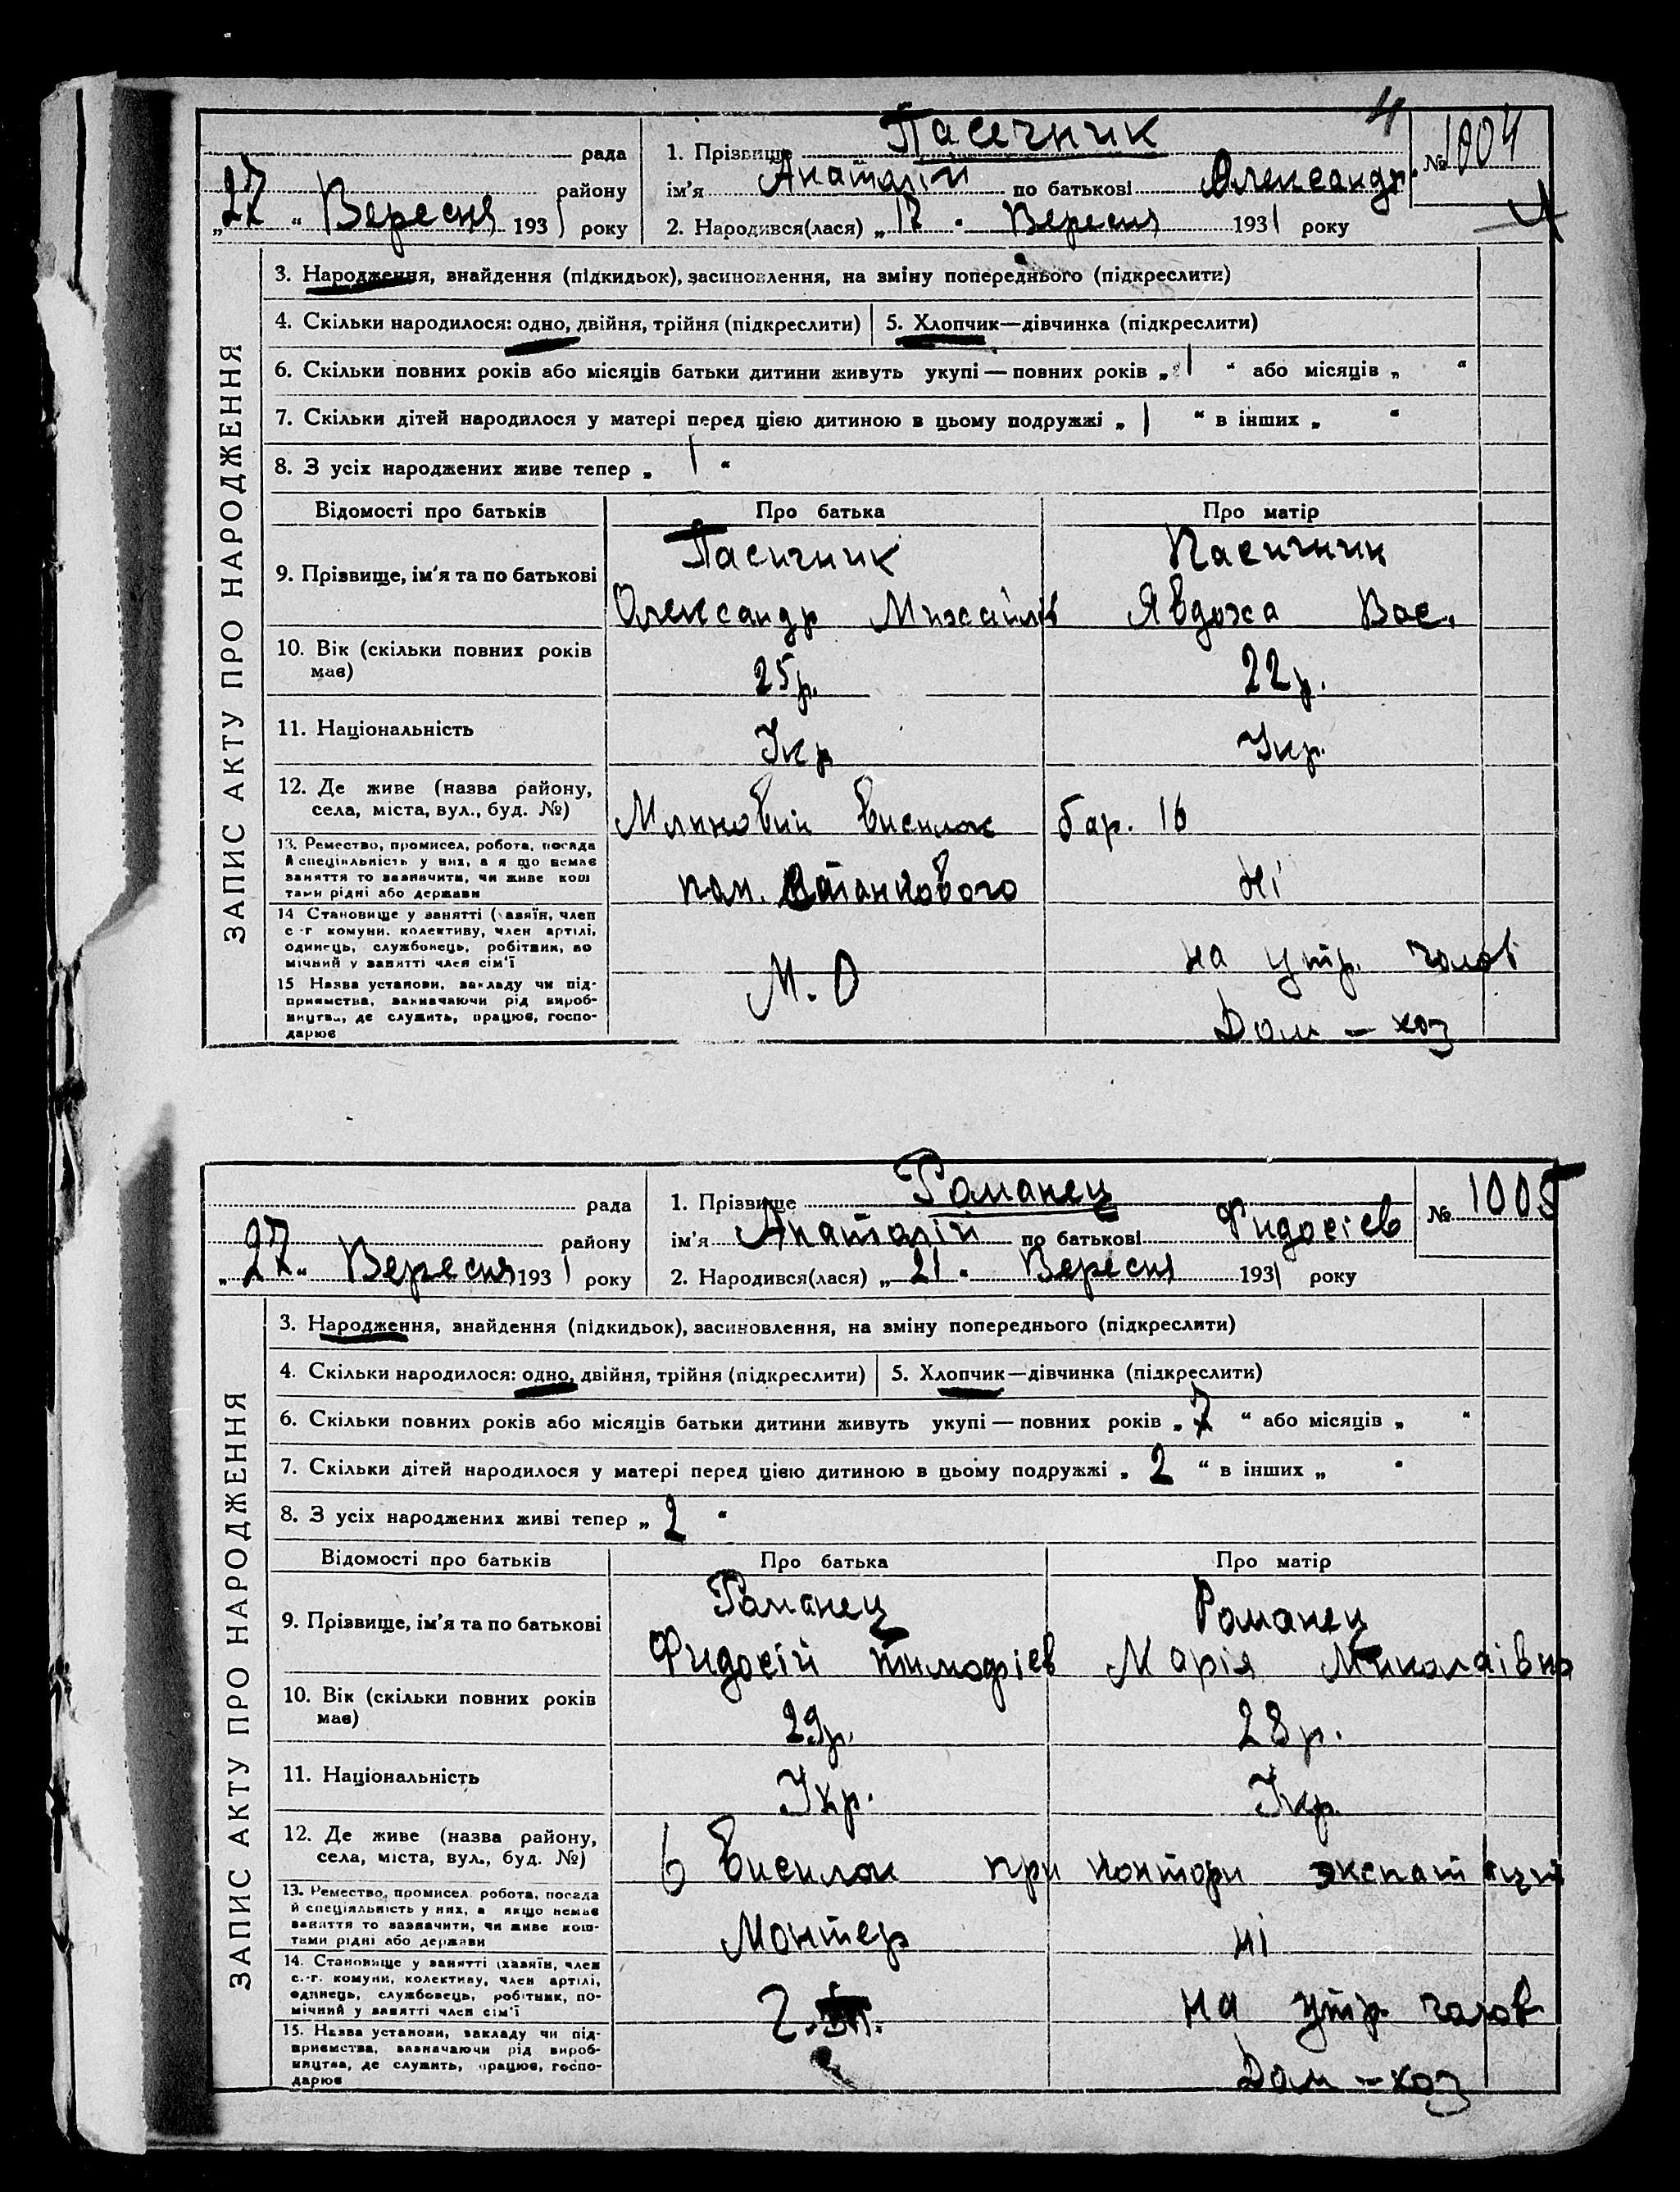 Пасечник 4
рада 1. Прізвище № 1004
району ім'я Анаталій по батькові Александр.
„27“ Вересня 1931 року 2. Народився(лася) „17“ Вересня 1931 року
3. Народження, внайдення (підкидьок), засиновлення, на зміну попереднього (підкреслити)
4. Скільки народилося: одно, двійня, трійня (підкреслити) 5. Хлопчик—дівчинка (підкреслити)
6. Скільки повних років або місяців батьки дитини живуть укупі — повних років „ 1 “ або місяців „ “
7. Скільки дітей народилося у матері перед цією дитиною в цьому подружжі „ 1 “ в інших „ “
8. З усіх народжених живе тепер „ 1 “
ЗАПИС АКТУ ПРО НАРОДЖЕННЯ
Відомості про батьків Про батька Про матір
Пасичник Пасичник
9. Прізвище, ім'я та по батькові
Олександр Михайлів Явдоха Вас.
10. Вік (скільки повних років має) 25р. 22р.
11. Національність Укр Укр.
12. Де живе (назва району,
села, міста, вул., буд. №) Млиновий висилок бар. 16
13. Ремество, промисел, робота, посада
й спеціяльність у них, а я що немає
заняття то зазначити, чи живе кош
тами рідні або держави
пом. ні
14 Становище у занятті (хазяїн, член
с.-г комуни, колективу, член артілі,
одинець, службовець, робітник, по
мічний у занятті член сім'ї
на утр. чолов
15 Назва установи, закладу чи під-
приємства, зазначаючи рід вироб-
ництва, де служить, працює, госпо-
дарює
М. О Дом – хоз
Романец
рада 1. Прізвище № 1005
району ім'я Анаталій по батькові Фидосієв
„27“ Вересня 1931 року 2. Народився(лася) „21“ Вересня 1931 року
3. Народження, внайдення (підкидьок), засиновлення, на зміну попереднього (підкреслити)
4. Скільки народилося: одно, двійня, трійня (підкреслити) 5. Хлопчик—дівчинка (підкреслити)
6. Скільки повних років або місяців батьки дитини живуть укупі — повних років „ 7 “ або місяців „ “
7. Скільки дітей народилося у матері перед цією дитиною в цьому подружжі „ 2 “ в інших „ “
8. З усіх народжених живі тепер „ 2 “
ЗАПИС АКТУ ПРО НАРОДЖЕННЯ
Відомості про батьків Про батька Про матір
Романец Романец
9. Прізвище, ім'я та по батькові
Фидосій Тимофієв Марія Миколаівна
10. Вік (скільки повних років має) 29р. 28р.
11. Національність Укр. Укр.
12. Де живе (назва району,
села, міста, вул., буд. №) 6 висилок при контори
13. Ремество, промисел робота, посада
й спеціяльність у них, а якщо немає
заняття то зазначити, чи живе кош-
тами рідні або держави
Монтер ні
14. Становище у занятті (хазяїн, член
с.-г. комуни, колективу, член артілі,
одинець, службовець, робітник, по-
мічний у занятті член сім'ї
на утр. чолов
15. Назва установи, закладу чи під-
приємства, зазначаючи рід вироб-
ництва, де служить, працює, госпо-
дарює
Дом – хоз